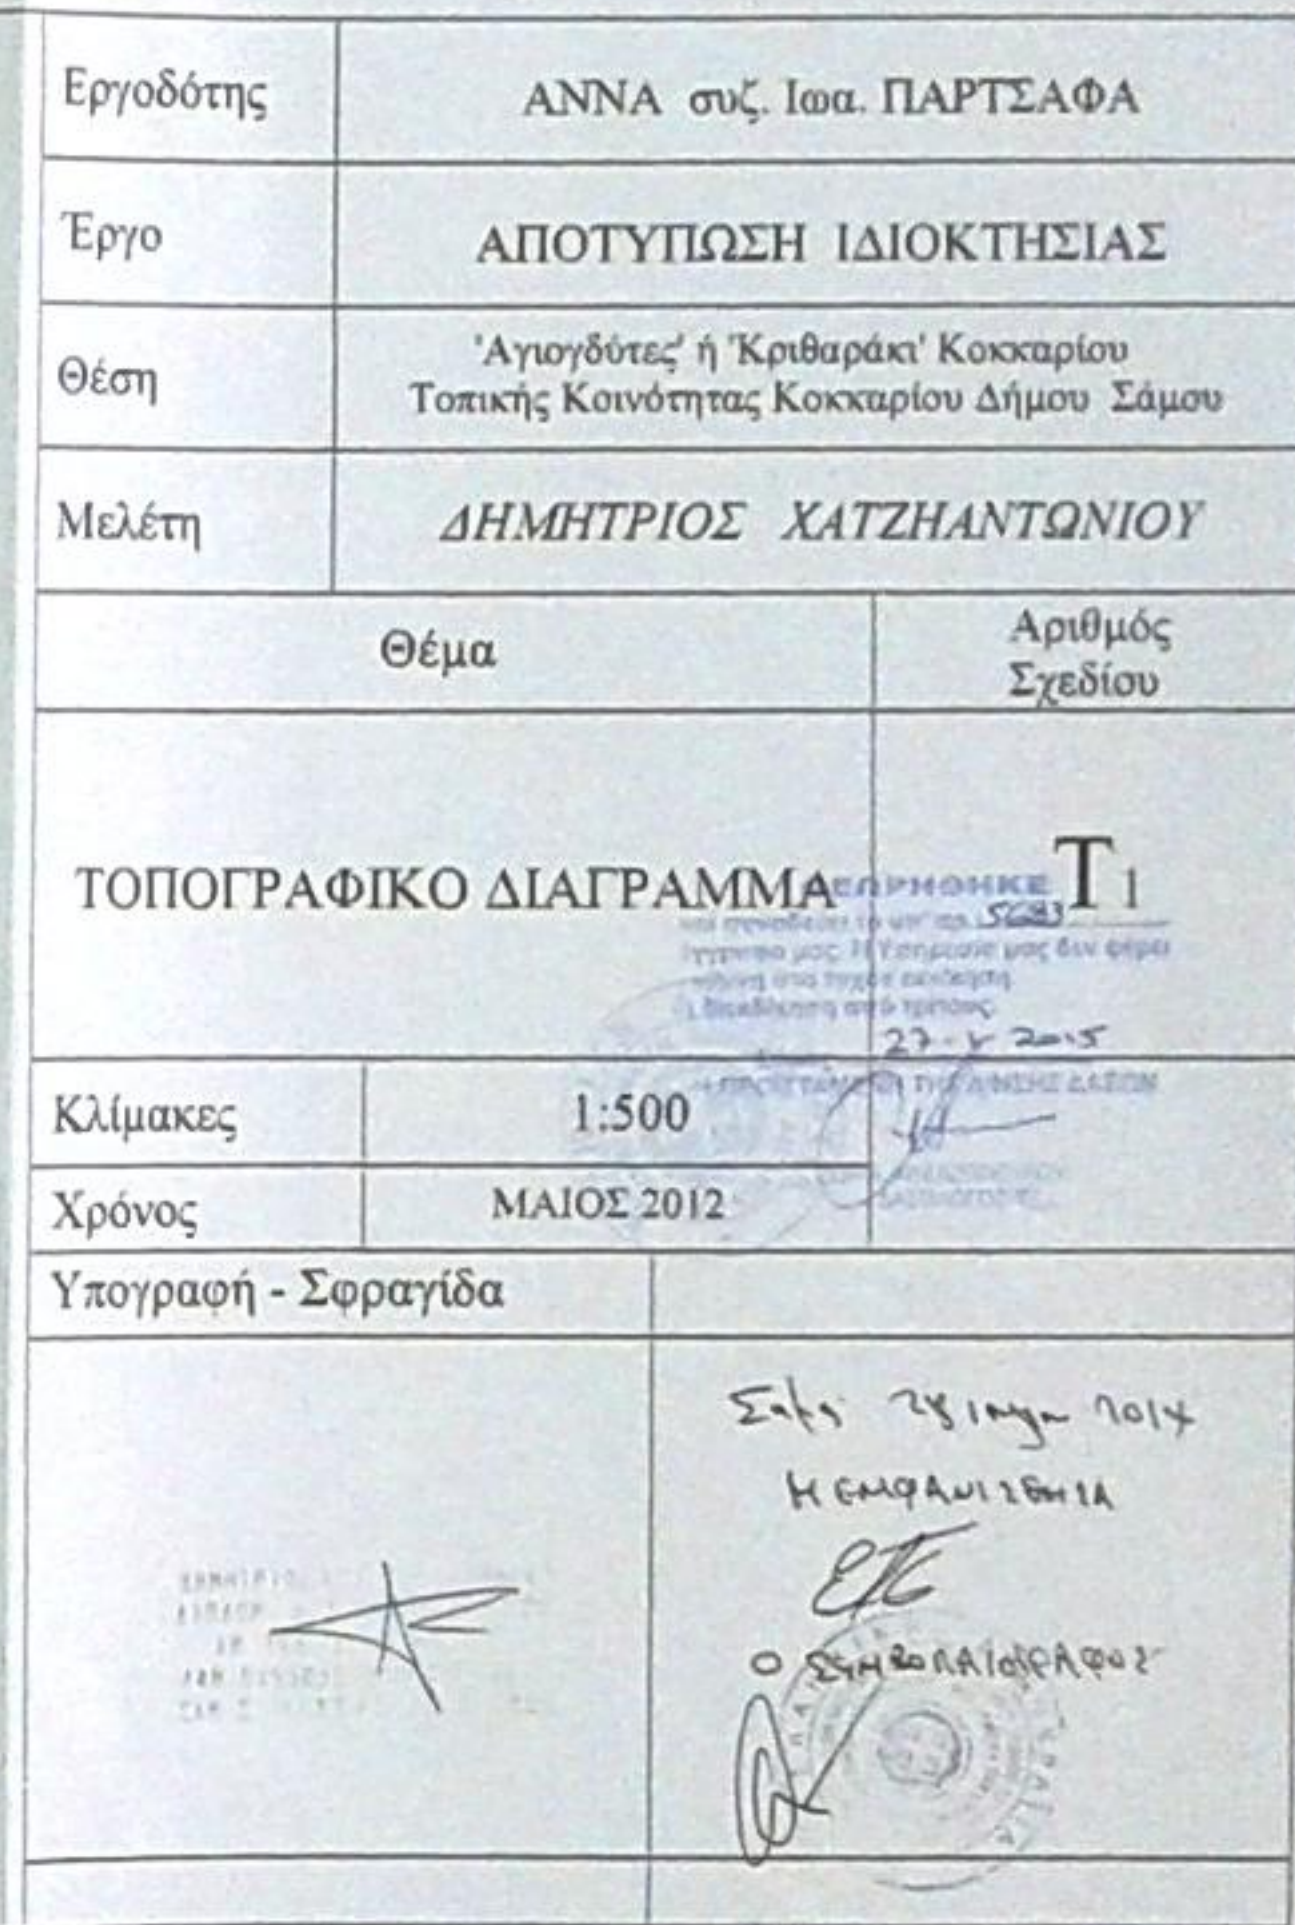 Εργοδότης ΑΝΝΑ συζ. Ιωα. ΠΑΡΤΣΑΦΑ
Έργο ΑΠΟΤΥΠΩΣΗ ΙΔΙΟΚΤΗΣΙΑΣ
Θέση 'Αγιογδύτες' ή 'Κριθαράκι' Κοκκαρίου
Τοπικής Κοινότητας Κοκκαρίου Δήμου Σάμου
Μελέτη ΔΗΜΗΤΡΙΟΣ ΧΑΤΖΗΑΝΤΩΝΙΟΥ
Θέμα Αριθμός
Σχεδίου
ΤΟΠΟΓΡΑΦΙΚΟ ΔΙΑΓΡΑΜΜΑ Τ1
ΘΕΩΡΗΘΗΚΕ
και συνοδεύει το υπ' αρ.
έγγραφο μας. Η Υπηρεσία μας δεν φέρει
από τρίτους.
2015
ΤΗΣ Δ/ΝΣΗΣ ΔΑΣΩΝ
Κλίμακες 1:500
Χρόνος ΜΑΙΟΣ 2012
Υπογραφή - Σφραγίδα
2014
Η ΕΜΦΑΝΙΖΟΜΕΝΗ
Ο ΣΥΜΒΟΛΑΙΟΓΡΑΦΟΣ